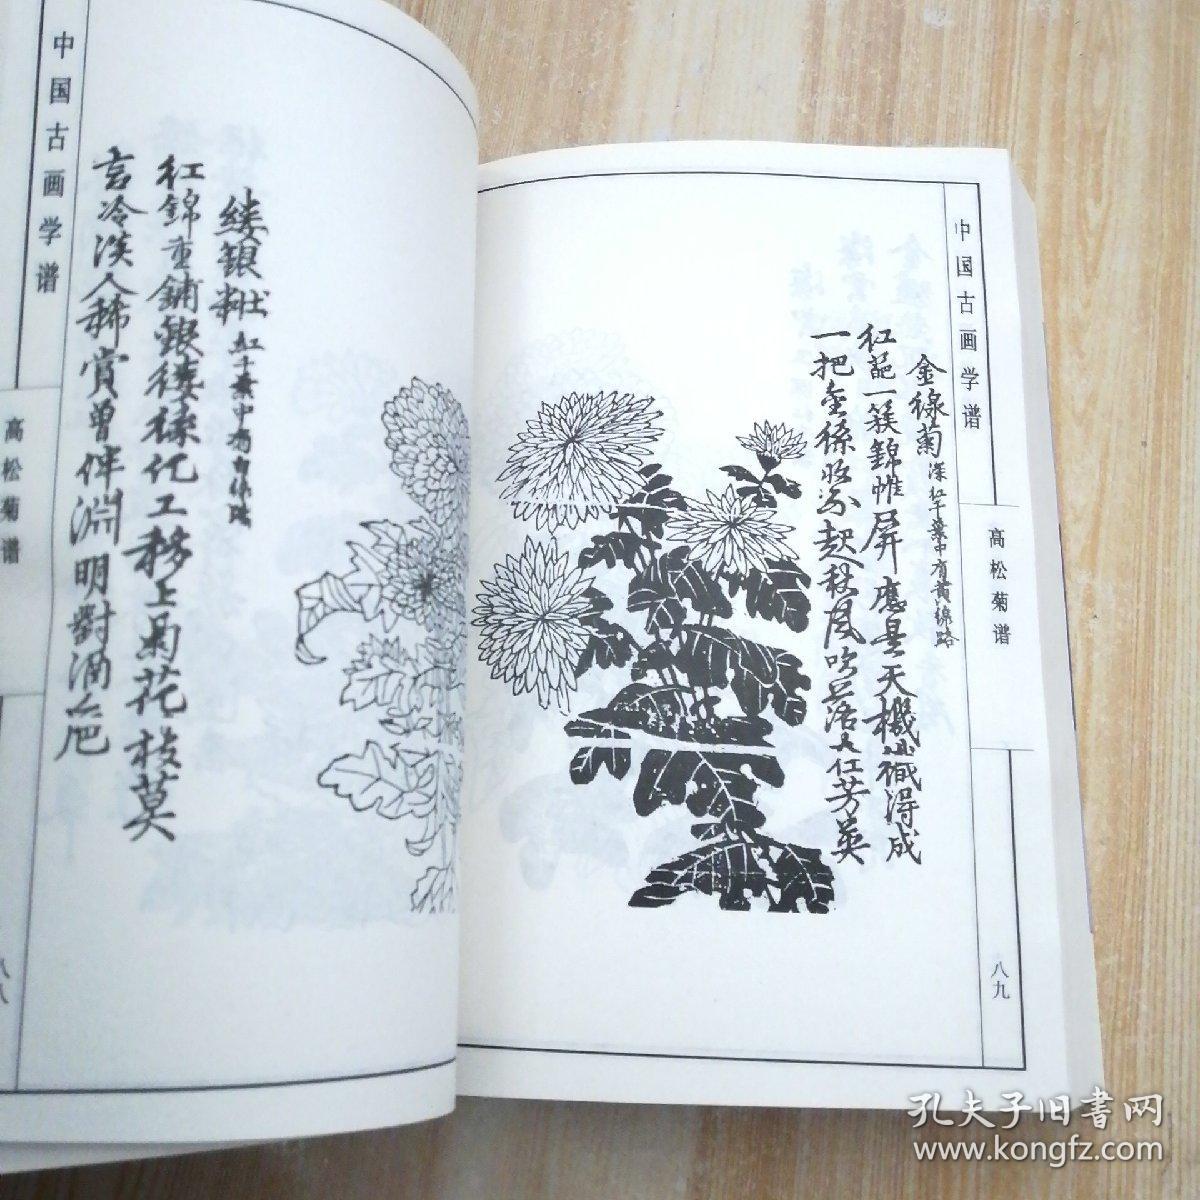 中国古画学谱
高松菊谱
八九
金線菊 深红千葉中有黄線路
红葩一簇錦帷屏應是天機織得成
一把金絲收不起秋風吹落人仁芳英
中国古画学谱
高松菊谱
八八
缕银 红千葉中有白線路
红錦重鋪銀缕絲化工移上菊花枝莫
言冷淡人稀賞曾伴淵明對酒卮
孔夫子旧书网
www.kongfz.com